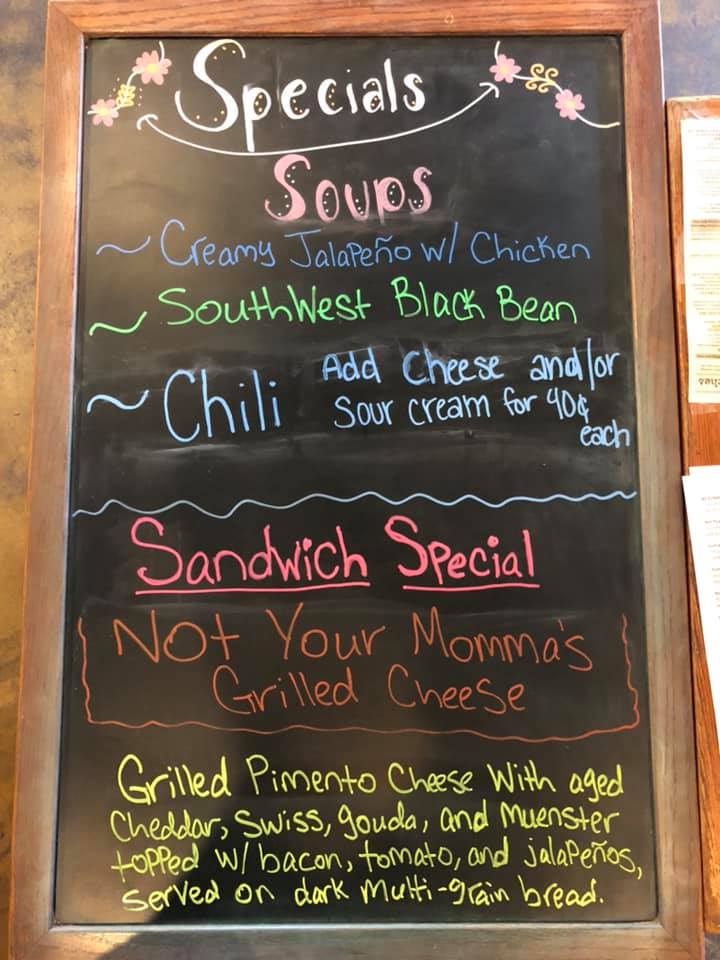 Specials
Soups
~ Creamy Jalapeño w/ Chicken
~ SouthWest Black Bean
~ Chili Add Cheese and/or
Sour cream for 40¢
each
Sandwich Special
Not Your Momma's
Grilled Cheese
Grilled Pimento Cheese With aged
Cheddar, Swiss, gouda, and Muenster
topped w/ bacon, tomato, and jalapeños,
served on dark multi-grain bread.